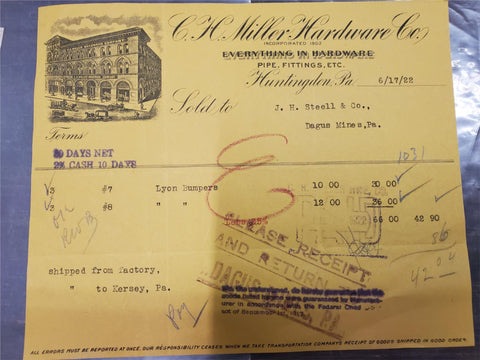 C. H. Miller Hardware Co.
INCORPORATED 1902
EVERYTHING IN HARDWARE
PIPE, FITTINGS, ETC.
Huntingdon, Pa. 6/17/22
Sold to J. H. Steell & Co.,
Dagus Mines, Pa.
Terms
30 DAYS NET
2% CASH 10 DAYS
1031
3 #7 Lyon Bumpers 10 00 30 00
3 #8 " " 12 00 36 00
Less 35% 66 00 42 90
86
42 04
OK
PLEASE RECEIPT
AND RETURN
DAGUS
shipped from factory,
" to Kersey, Pa.
We, the undersigned, do hereby guarantee that the
goods listed herein were guaranteed by Manufacturer
in accordance with the Federal Child
act of September 1st, 1917
ALL ERRORS MUST BE REPORTED AT ONCE. OUR RESPONSIBILITY CEASES WHEN WE TAKE TRANSPORTATION COMPANYS RECEIPT OF GOODS SHIPPED IN GOOD ORDER.